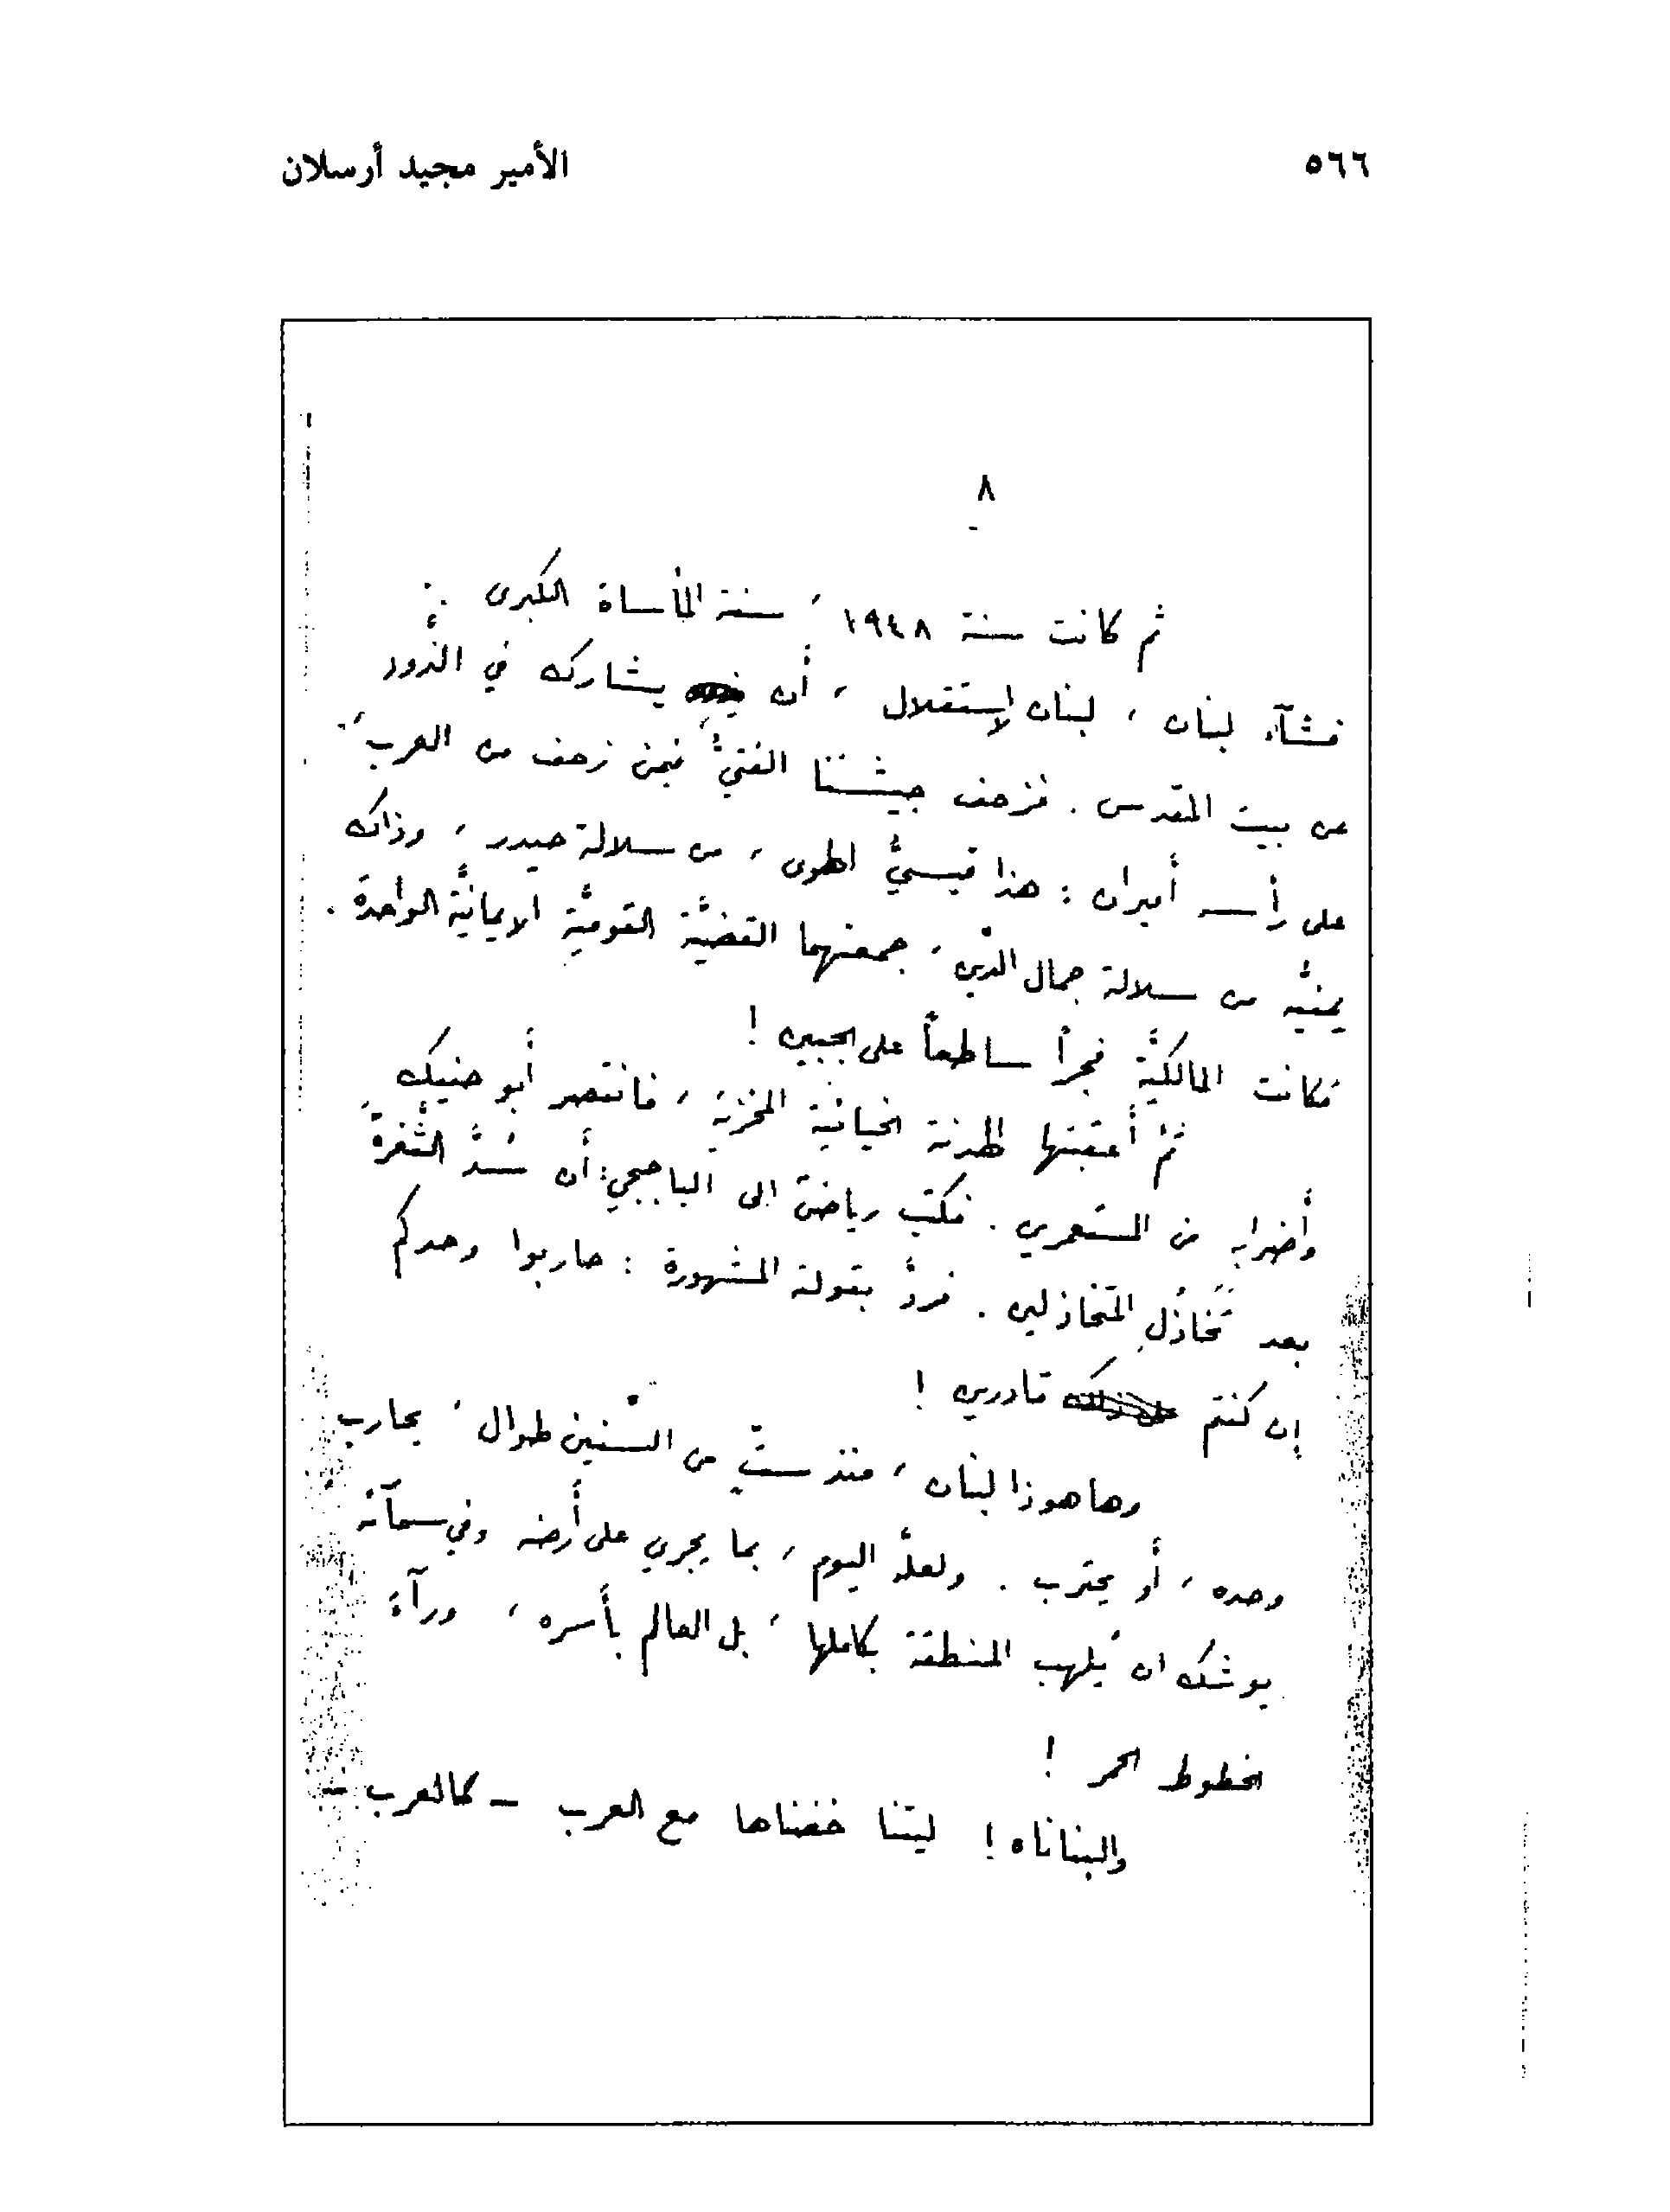 ٥٦٦
الأمير مجيد أرسلان
٨
ثم كانت سنة ١٩٤٨، سنة المأساة الكبرى.
فشآء لبنان، لبنان الإستقلال، أن يشارك في الذَّود
عن بيت المقدس. فزحف جيشنا الفتيُّ فيمن زحف من العرب،
على رأسه أميران: هذا قيسيُّ الهوى، من سلالة حيدر، وذاك
يمنيُّه من سلالة جمال الدّين، جمعتهما القضيَّة القوميَّة الايمانيَّة الواحدة.
فكانت المالكيَّة فجراً ساطعاً على الجبين!
ثمَّ أعقبتها الهدنة الخيانيَّة المخزية، فانتصر أبو حنيك
وأضرابه من المستعمرين. فكتب رياضنا الى الباجه جي: أن سُدَّ الثَّغرةَ
بعد تَخاذُلِ المتخاذلين. فردَّ بقولته المشهورة: حاربوا وحدكم
إن كنتم قادرين!
وها هوذا لبنان، منذ ستٍّ من السّنين طوال، يحارب
وحده، أو يحترب. ولعلَّه اليوم، بما يجري على أرضه وفي سمآئه
يوشك ان يُلهب المنطقة بكاملها، بل العالم بأسره، ورآءَ
الخطوط الحمر!
والبناناه! ليتنا خضناها مع العرب - كالعرب -